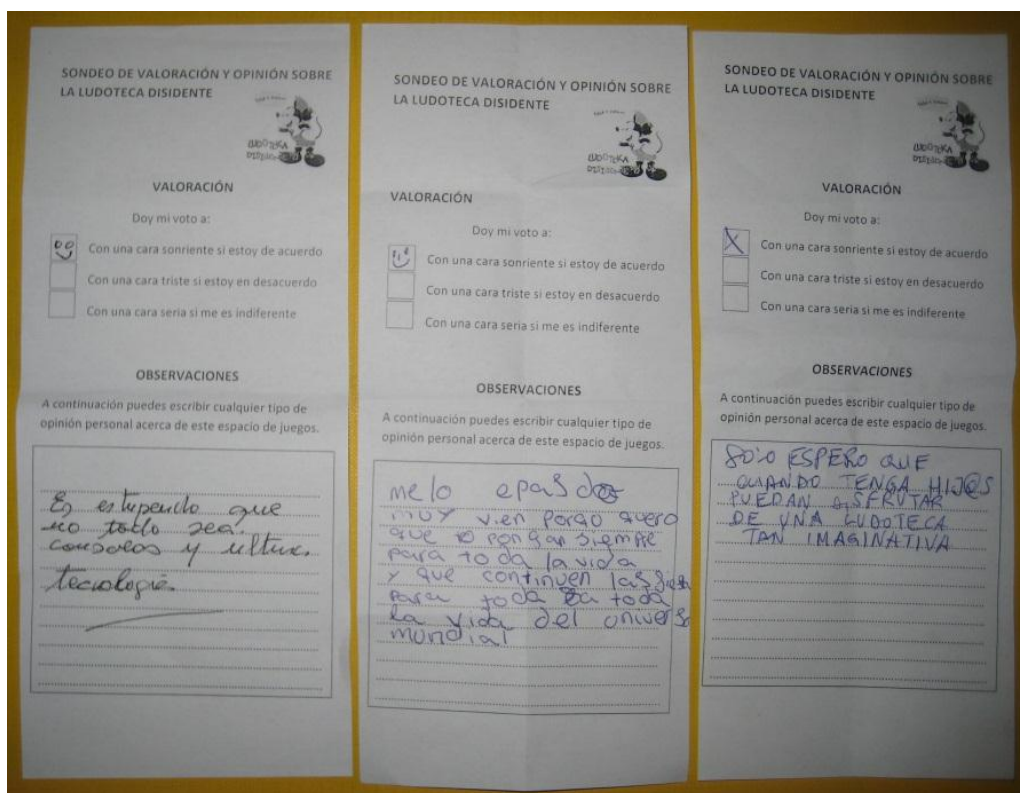 SONDEO DE VALORACIÓN Y OPINIÓN SOBRE
LA LUDOTECA DISIDENTE
LUDOTEKA
VALORACIÓN
Doy mi voto a:
Con una cara sonriente si estoy de acuerdo
Con una cara triste si estoy en desacuerdo
Con una cara seria si me es indiferente
OBSERVACIONES
A continuación puedes escribir cualquier tipo de
opinión personal acerca de este espacio de juegos.
Es estupendo que
no todo sea
consolas y ultux.
tecnología.
SONDEO DE VALORACIÓN Y OPINIÓN SOBRE
LA LUDOTECA DISIDENTE
LUDOTEKA
VALORACIÓN
Doy mi voto a:
Con una cara sonriente si estoy de acuerdo
Con una cara triste si estoy en desacuerdo
Con una cara seria si me es indiferente
OBSERVACIONES
A continuación puedes escribir cualquier tipo de
opinión personal acerca de este espacio de juegos.
me lo epasdo
muy vien porqo quero
que lo pongan siempre
para toda la vida
y que continuen las
para toda la toda
la vida del universo
mundial
SONDEO DE VALORACIÓN Y OPINIÓN SOBRE
LA LUDOTECA DISIDENTE
LUDOTEKA
VALORACIÓN
Doy mi voto a:
X Con una cara sonriente si estoy de acuerdo
Con una cara triste si estoy en desacuerdo
Con una cara seria si me es indiferente
OBSERVACIONES
A continuación puedes escribir cualquier tipo de
opinión personal acerca de este espacio de juegos.
SOLO ESPERO QUE
CUANDO TENGA HIJ@S
PUEDAN DISFRUTAR
DE UNA LUDOTECA
TAN IMAGINATIVA